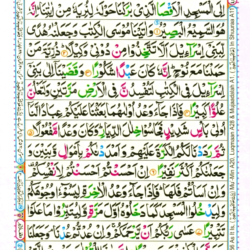 إِلَى الْمَسْجِدِ الْأَقْصَا الَّذِي بَارَكْنَا حَوْلَهُ لِنُرِيَهُ مِنْ آيَاتِنَا إِنَّهُ
هُوَ السَّمِيعُ الْبَصِيرُ وَآتَيْنَا مُوسَى الْكِتَابَ وَجَعَلْنَاهُ هُدًى
لِبَنِي إِسْرَائِيلَ أَلَّا تَتَّخِذُوا مِنْ دُونِي وَكِيلًا ذُرِّيَّةَ مَنْ
حَمَلْنَا مَعَ نُوحٍ إِنَّهُ كَانَ عَبْدًا شَكُورًا وَقَضَيْنَا إِلَى بَنِي
إِسْرَائِيلَ فِي الْكِتَابِ لَتُفْسِدُنَّ فِي الْأَرْضِ مَرَّتَيْنِ وَلَتَعْلُنَّ عُلُوًّا
كَبِيرًا فَإِذَا جَاءَ وَعْدُ أُولَاهُمَا بَعَثْنَا عَلَيْكُمْ عِبَادًا لَنَا
أُولِي بَأْسٍ شَدِيدٍ فَجَاسُوا خِلَالَ الدِّيَارِ وَكَانَ وَعْدًا مَفْعُولًا
ثُمَّ رَدَدْنَا لَكُمُ الْكَرَّةَ عَلَيْهِمْ وَأَمْدَدْنَاكُمْ بِأَمْوَالٍ وَبَنِينَ وَ
جَعَلْنَاكُمْ أَكْثَرَ نَفِيرًا إِنْ أَحْسَنْتُمْ أَحْسَنْتُمْ لِأَنْفُسِكُمْ
وَإِنْ أَسَأْتُمْ فَلَهَا فَإِذَا جَاءَ وَعْدُ الْآخِرَةِ لِيَسُوءُوا وُجُوهَكُمْ
وَلِيَدْخُلُوا الْمَسْجِدَ كَمَا دَخَلُوهُ أَوَّلَ مَرَّةٍ وَلِيُتَبِّرُوا مَا عَلَوْا
تَتْبِيرًا عَسَى رَبُّكُمْ أَنْ يَرْحَمَكُمْ وَإِنْ عُدْتُمْ عُدْنَا